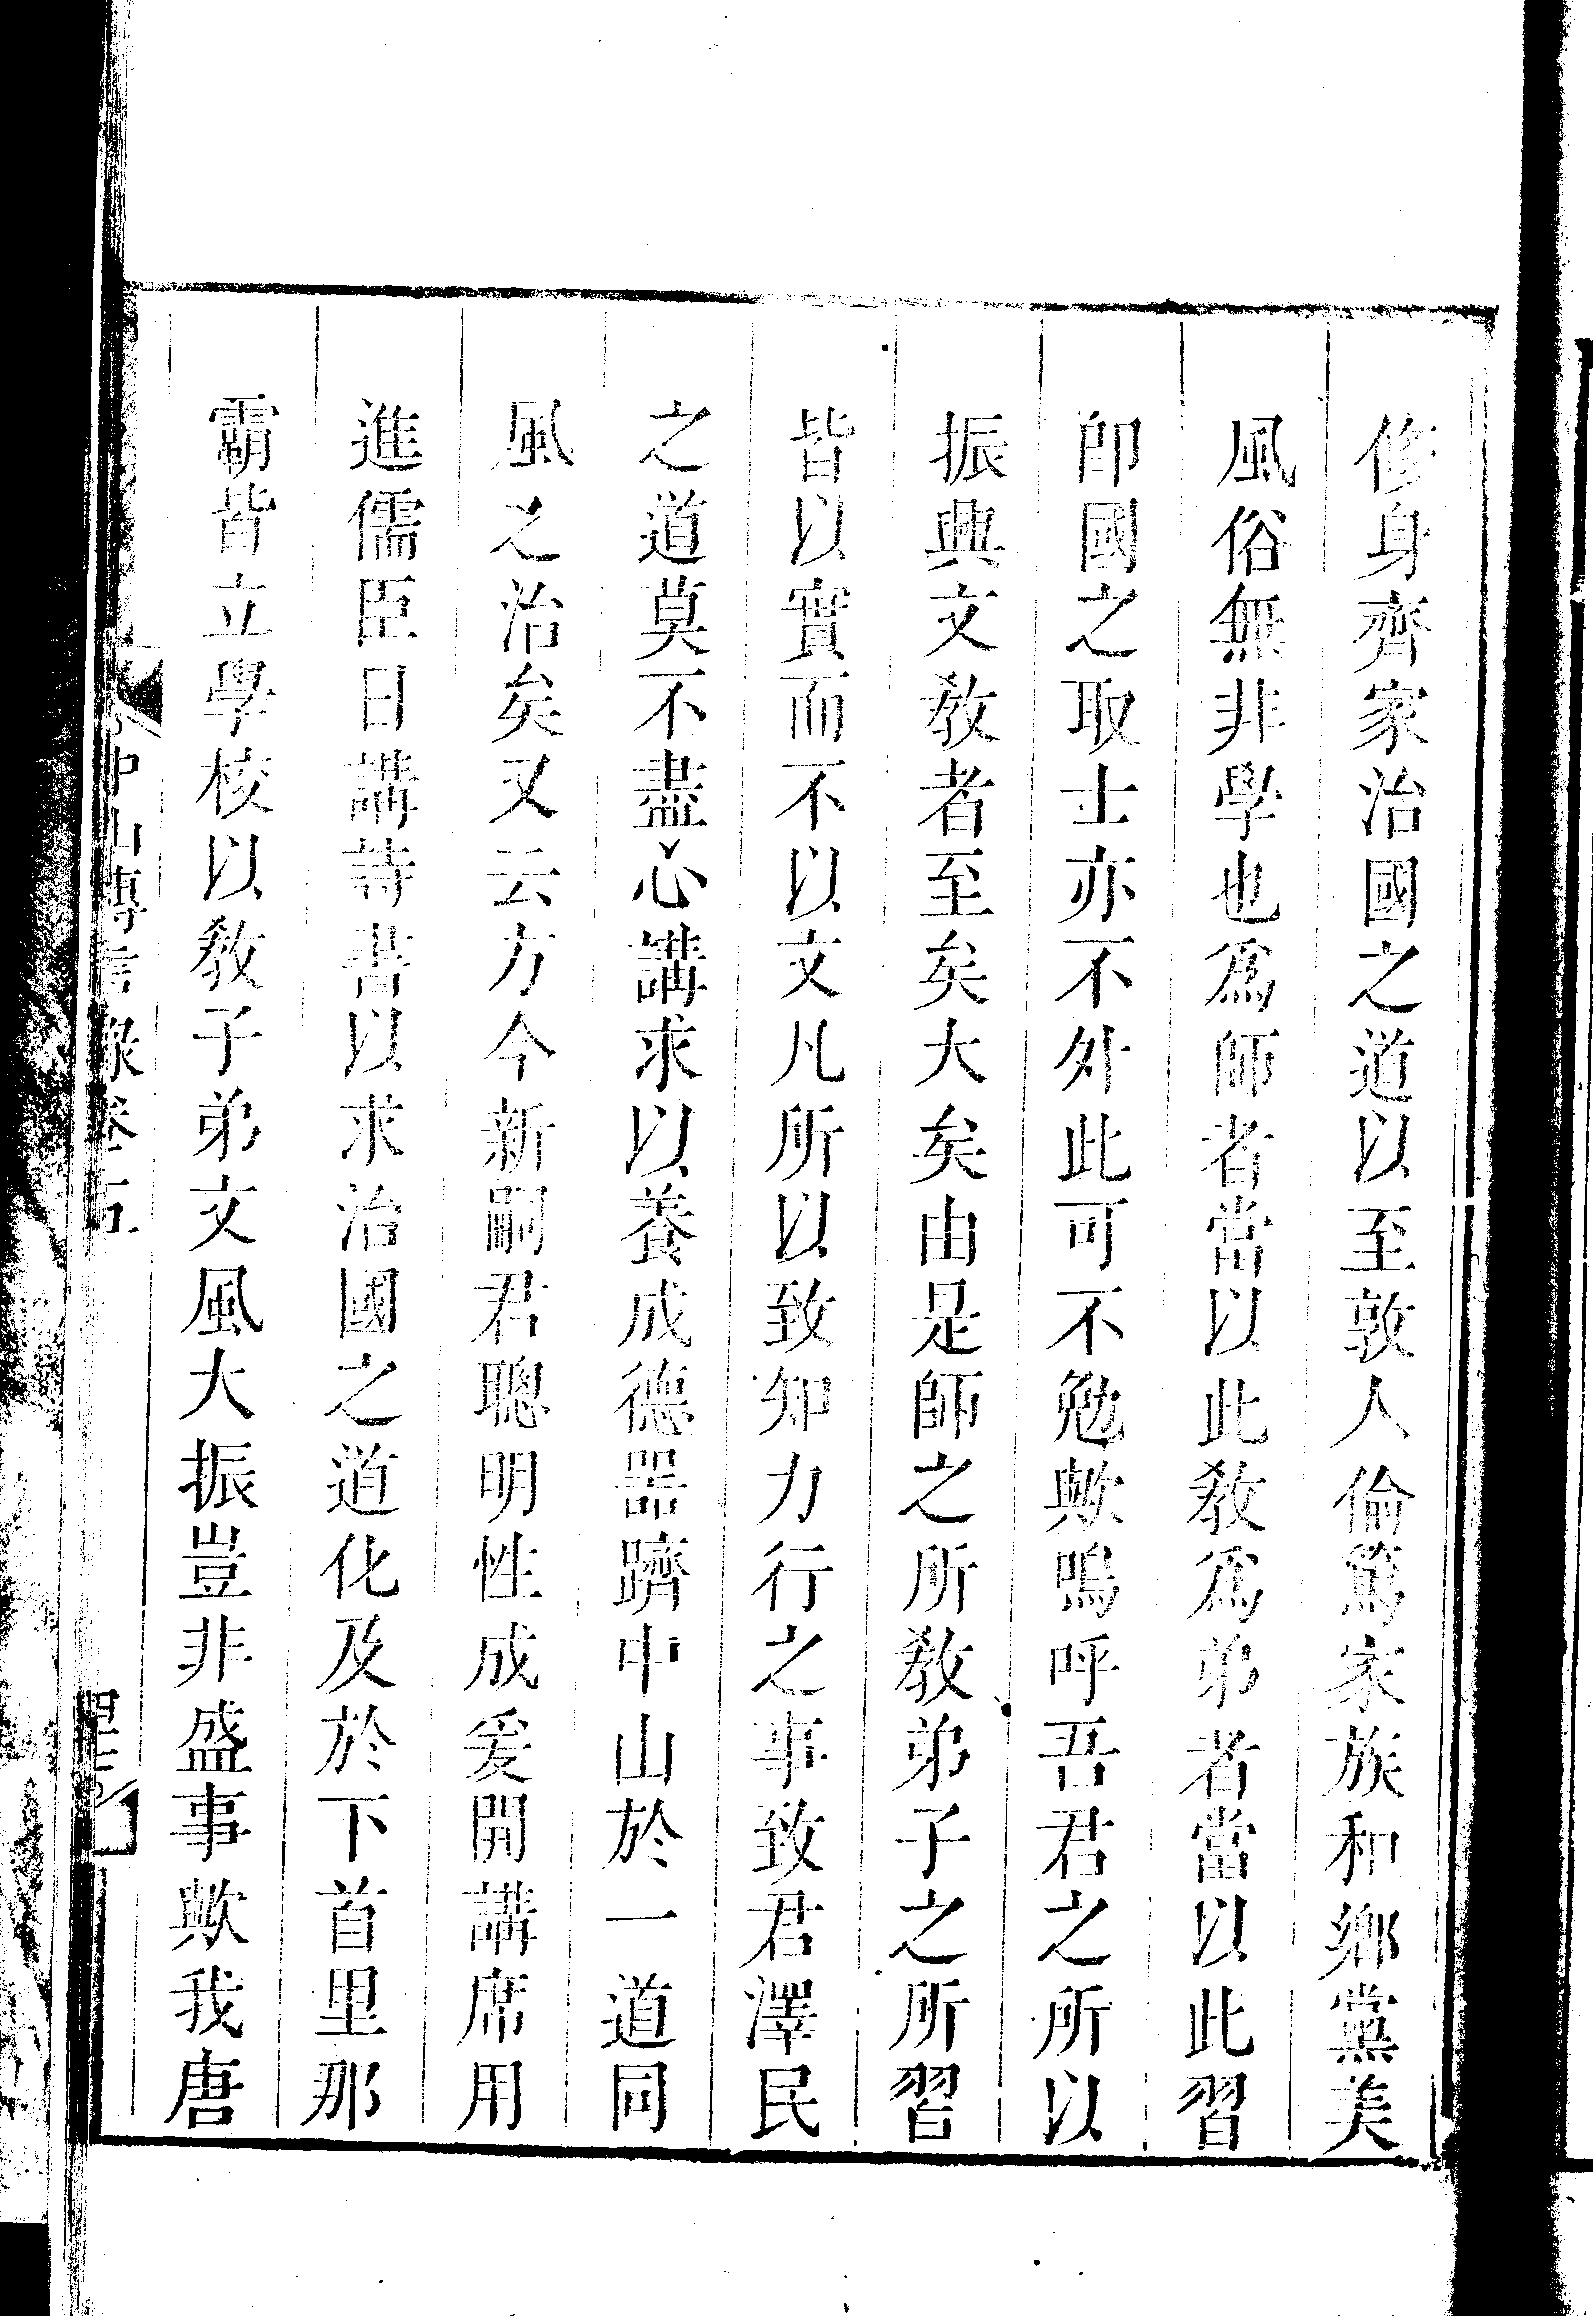 修身齊家治國之道以至敦人倫篤家族和鄉黨美
風俗無非學也爲師者當以此敎爲弟者當以此習
卽國之取士亦不外此可不勉歟嗚呼吾君之所以
振興文敎者至矣大矣由是師之所敎弟子之所習
皆以實而不以文凡所以致知力行之事致君澤民
之道莫不盡心講求以養成德器躋中山於一道同
風之治矣又云方今新嗣君聰明性成爰開講席用
進儒臣日講詩書以求治國之道化及於下首里那
霸皆立學校以敎子弟文風大振豈非盛事歟我唐
中山傳信錄卷五